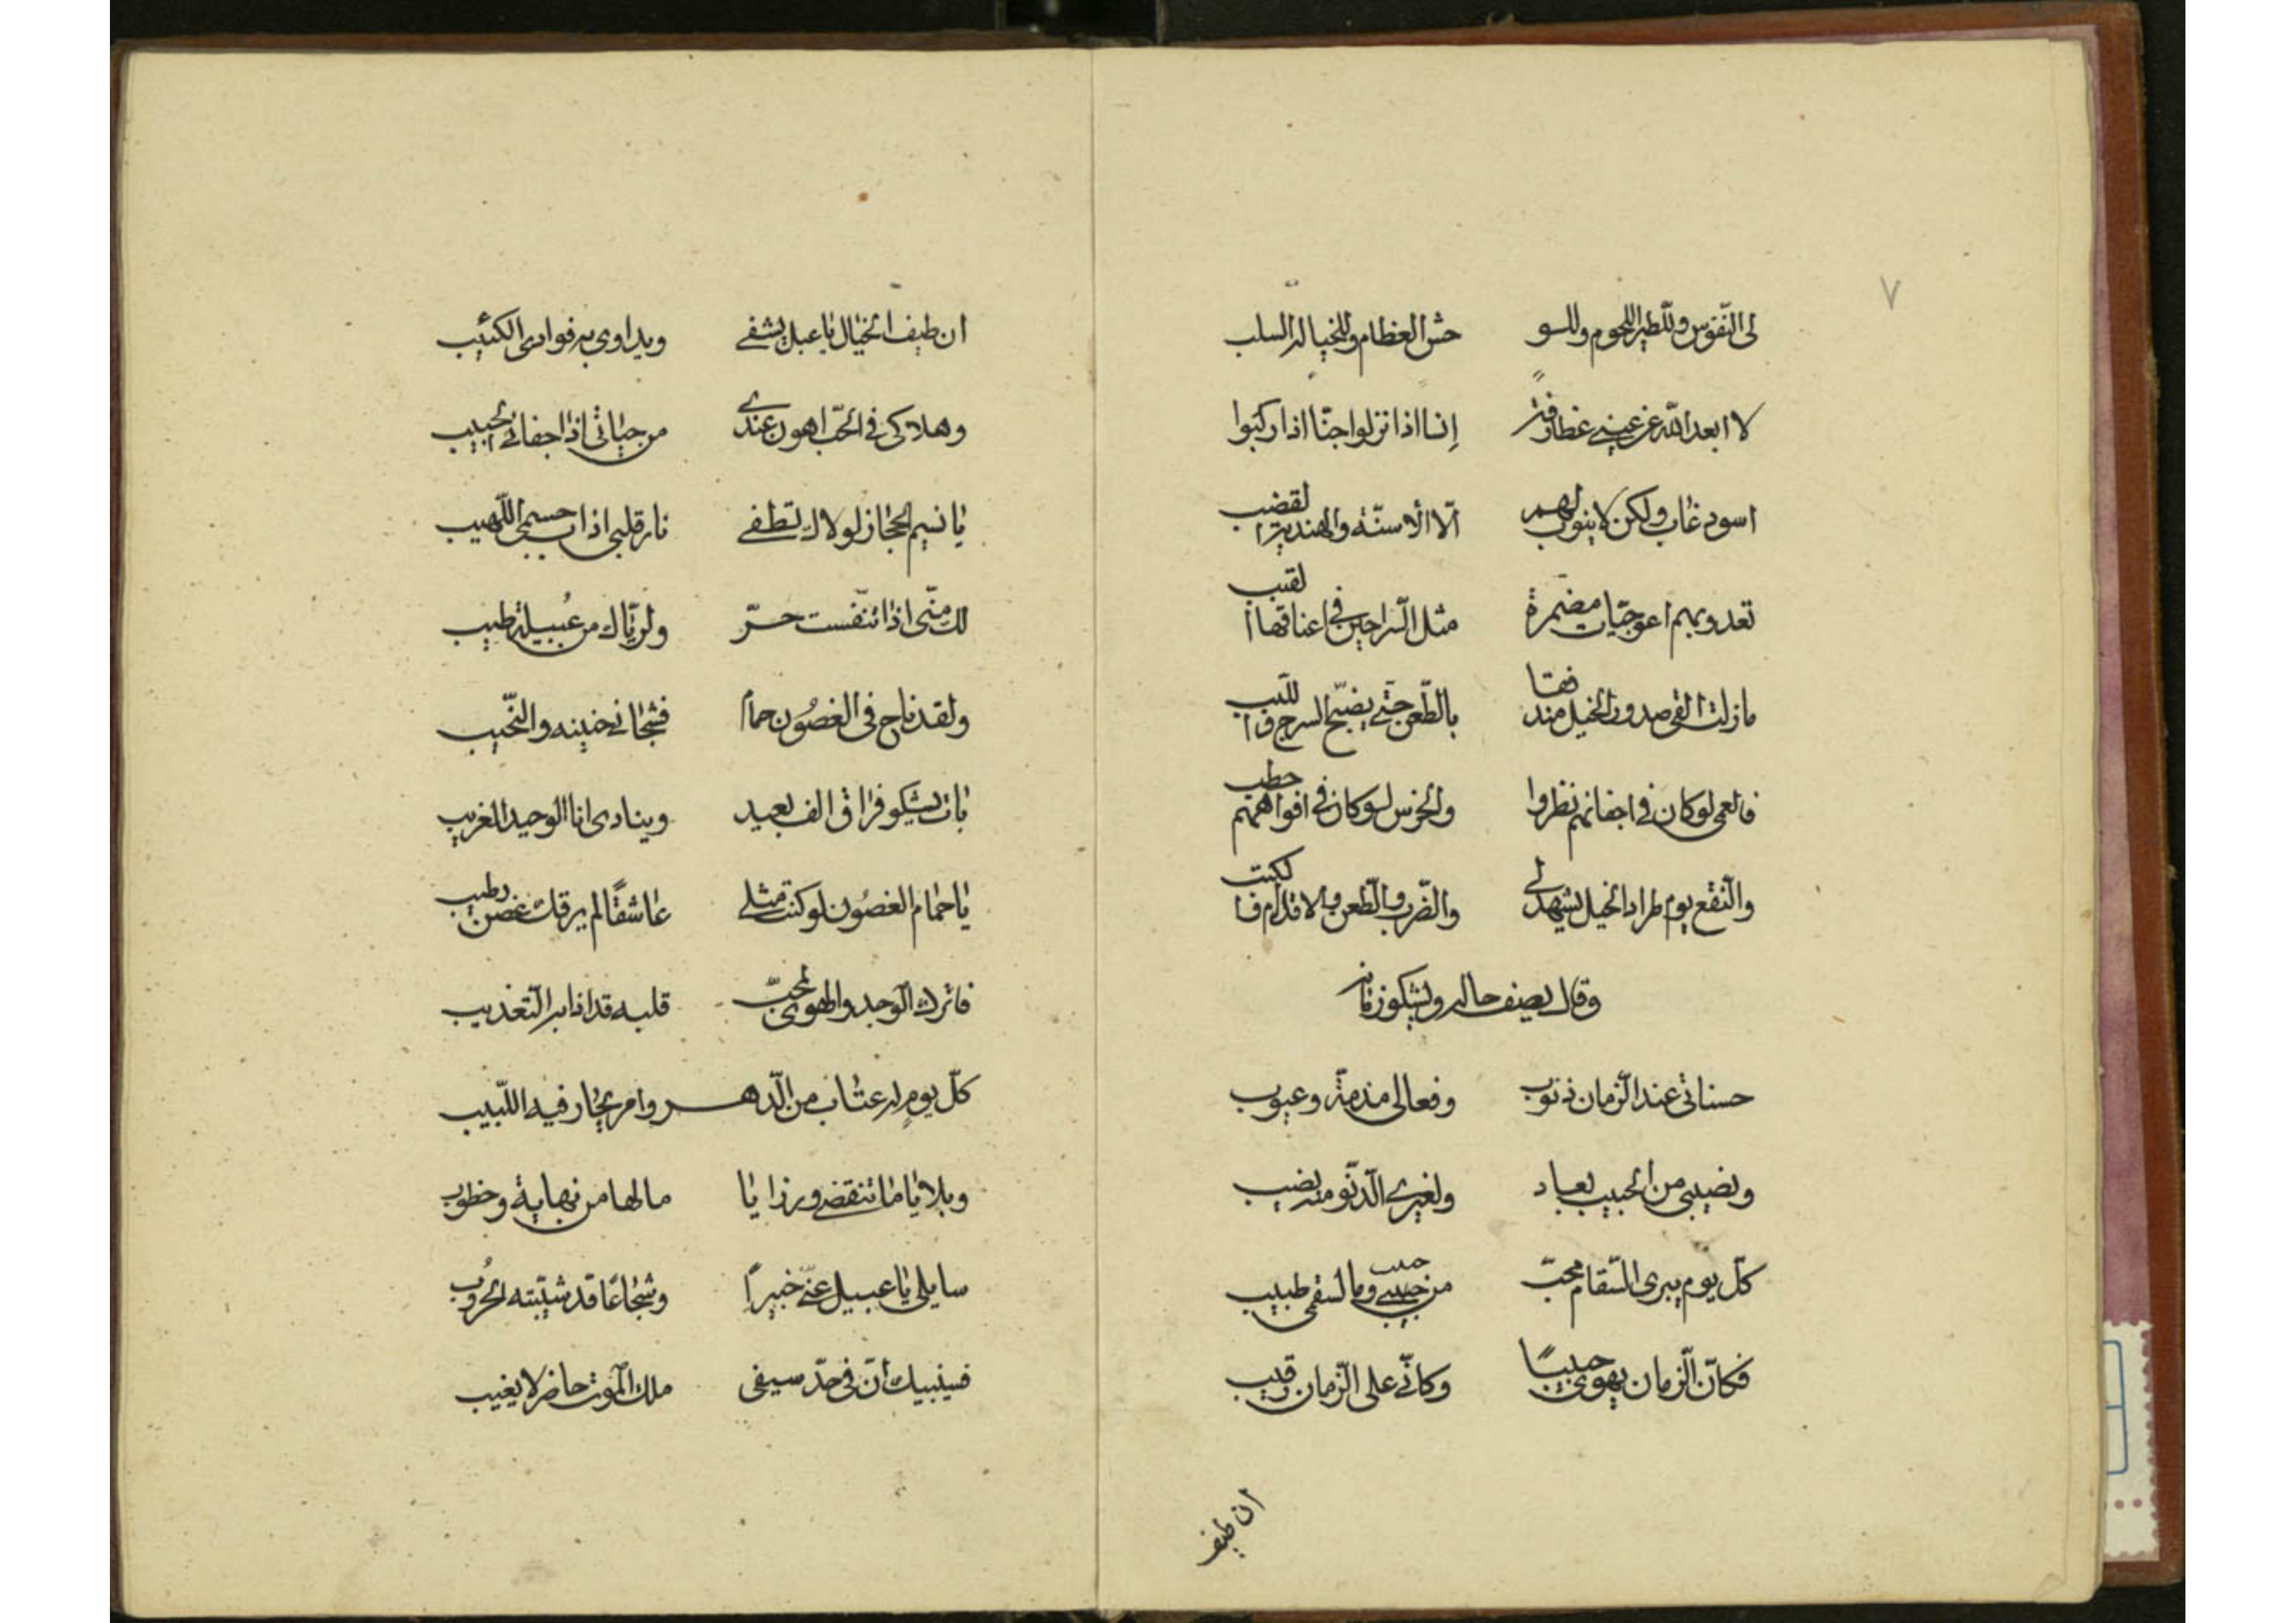 ٧
لى النّفوس وللّطير اللحوم وللو حش العظام وللخيالة السلب
لا ابعد اللّه عن عيني غطارفة إنسا اذا نزلوا جنّا اذا ركبوا
اسود غاب ولكن لا ينوب لهم الّا الاسنّة والهندية القضب
تعدو بهم اعوجيّات مضمرة مثل السّراحين في اعناقها القبب
ما زلت القى صدور الخيل مندفقا بالطّعن حتّى يضبّح السرج واللّبب
فالعمى لو كان في اجفانهم نظروا والخرس لو كان في افواههم خطب
والنّقع يوم طراد الخيل يشهد لي والضّرب والطّعن والاقلام فالكتب
وقال يصف حاله ويشكو زمانه
حسناتى عند الزّمان ذنوب وفعالى مذمّة وعيوب
ونصيبى من الحبيب بعاد ولغيري الدّنّو منه نصيب
كلّ يوم يبرى السّقام محبّ من حبيب وما لسقمى طبيب
فكانّ الزّمان يهوى حبيبًا وكانّي على الزّمان رقيب
ان طيف
ان طيف الخيال يا عبل يشفي ويداوى به فوادى الكئيب
وهلاكى في الحبّ اهون عندي من حياتى اذا جفاني الحبيب
يا نسيم الحجاز لولاك تطفي نار قلبى اذاب جسمى اللّهيب
لك منّى اذا تنفّست حرّ ولريّاك من عُبيلة طيب
ولقد ناح فى الغصُون حمام فشجاني حنينه والنّحيب
بات يشكو فراق الف بعيد وينادى انا الوحيد الغريب
يا حمام الغصُون لو كنت مثلي عاشقًا لم يرقك غصن رطيب
فاترك الوجد والهوى لمحبّ قلبه قد اذابه التّعذيب
كلّ يومٍ له عتاب من الدّهر وامر يحار فيه اللّبيب
وبلايا ما تنقضي ورزايا ما لها من نهاية وخطوب
سايلى يا عبيل عنّي خبيرًا وشجاعًا قد شيّبته الحرُوب
فسينبيك أنّ في حدّ سيفى ملك الموت حاضر لا يغيب